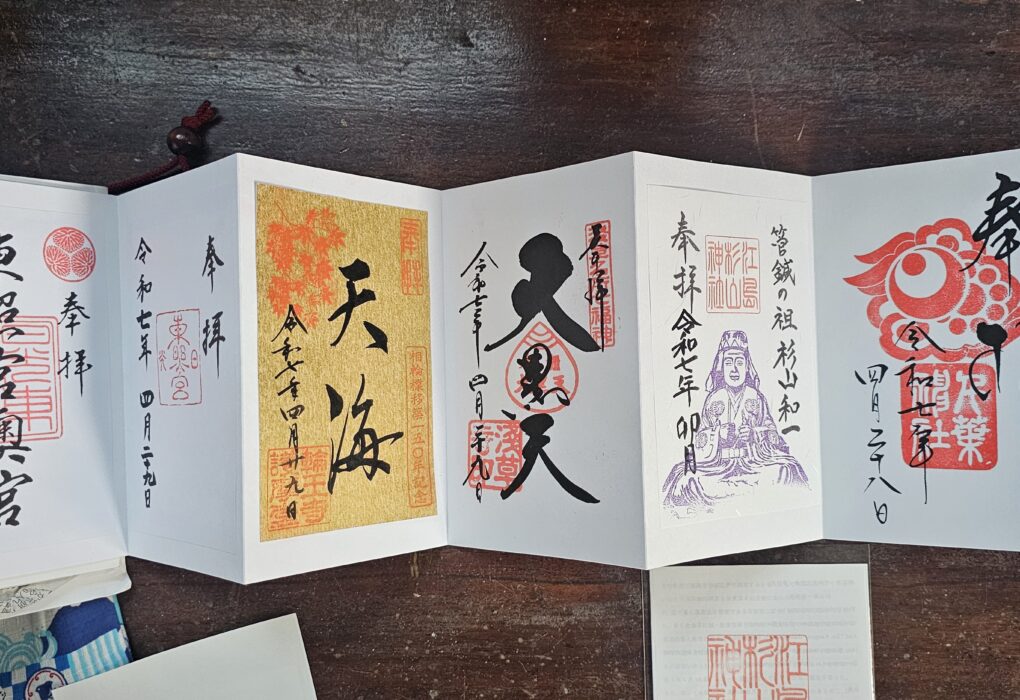 奉
令和七年
四月二十八日
管鍼の祖 杉山和一
江島
杉山
神社
奉拝 令和七年 卯月
奉拝
大黒天
令和七年 四月二十九日
奉拝
天海
相輪橖移築一五〇年記念
令和七年四月廿九日
輪王寺
奉拝
日
東照宮
光
令和七年 四月二十九日
奉拝
東照宮奥宮
江島
杉山
神